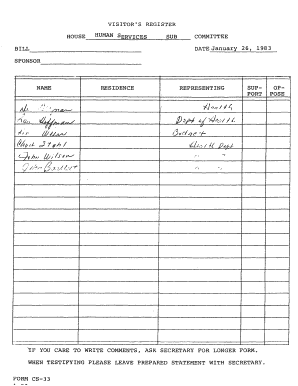 VISITOR'S REGISTER
HOUSE HUMAN SERVICES SUB COMMITTEE
BILL DATE January 26, 1983
SPONSOR
NAME RESIDENCE REPRESENTING SUP-PORT OP-POSE
Health
Hoffman Dept of Health
Budget
Chuck Stohl Health Dept
John Wilson " "
IF YOU CARE TO WRITE COMMENTS, ASK SECRETARY FOR LONGER FORM.
WHEN TESTIFYING PLEASE LEAVE PREPARED STATEMENT WITH SECRETARY.
FORM CS-33